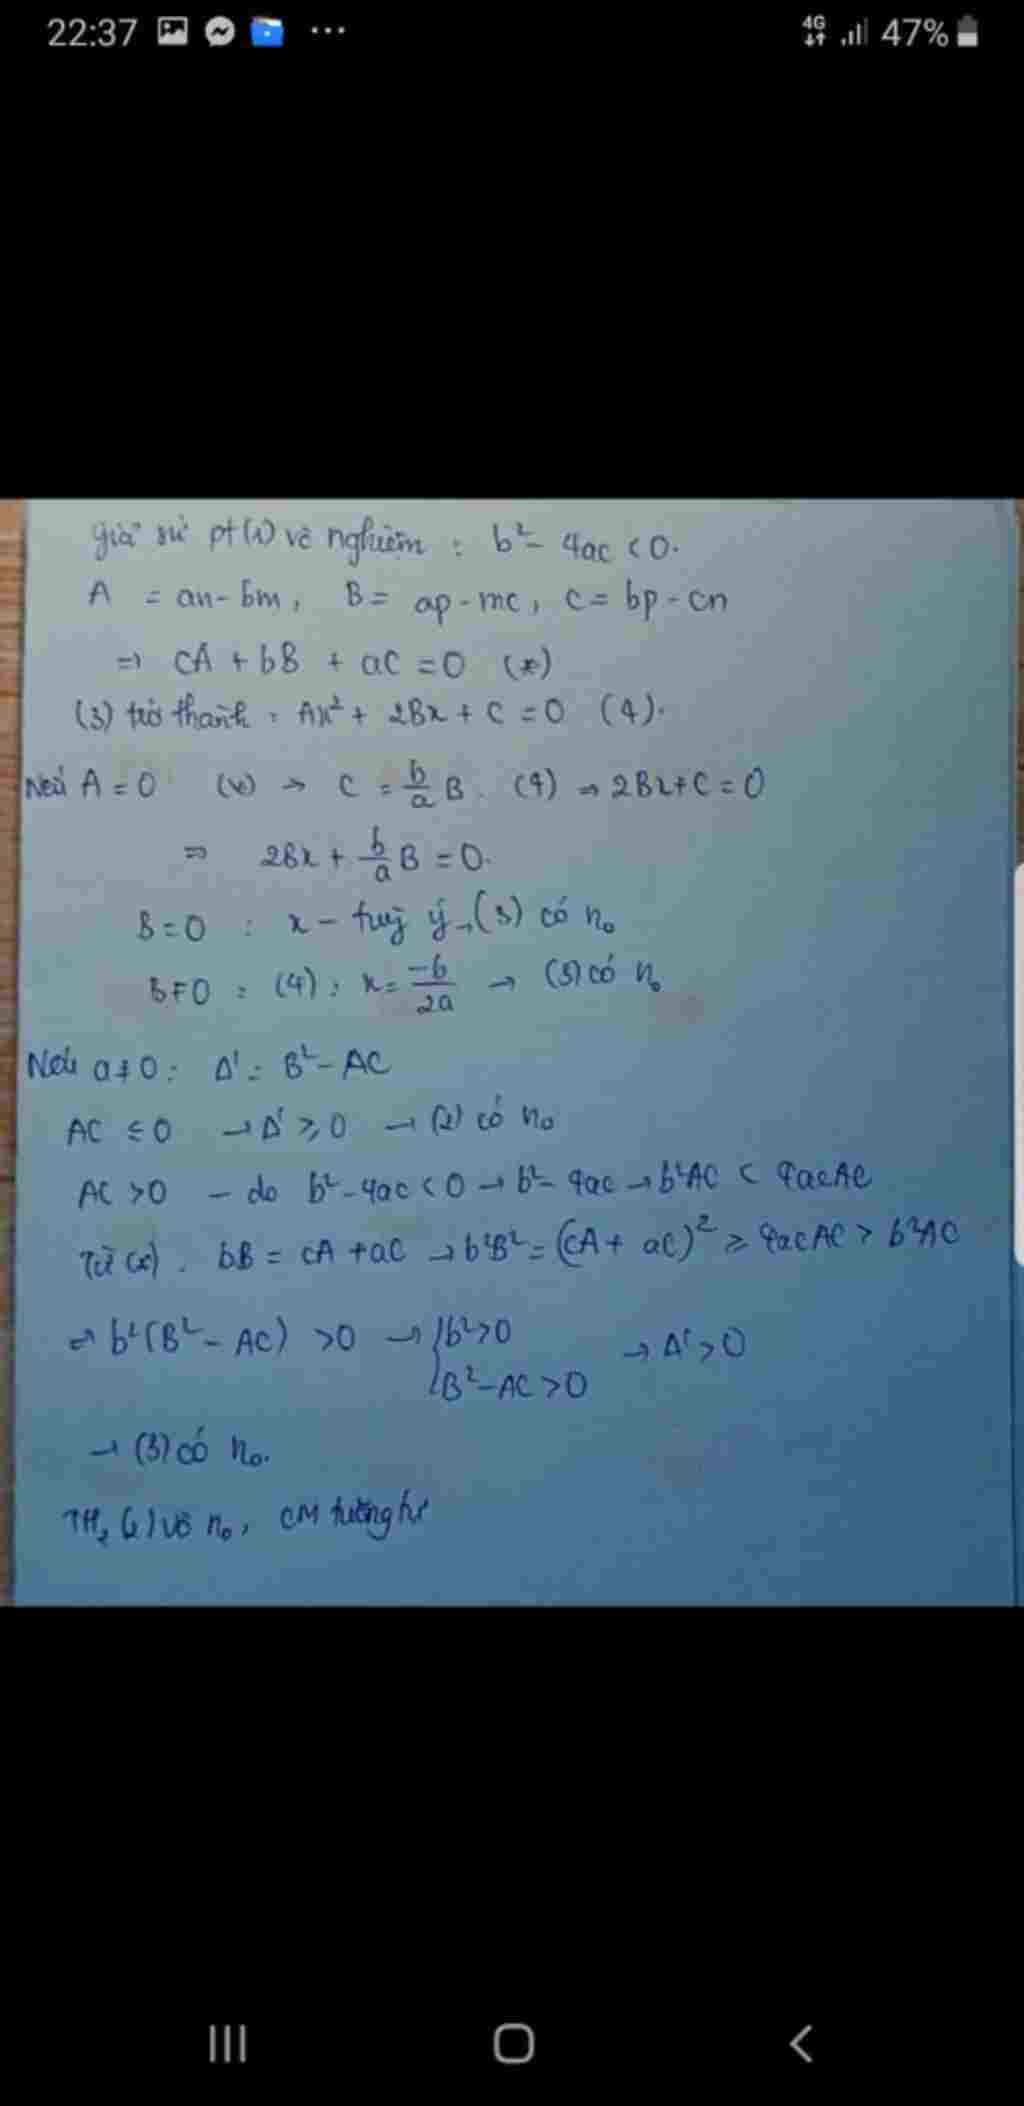 22:37 4G 47%
giả sử pt(1) vô nghiệm : b² - 4ac < 0.
A = an - bm, B = ap - mc, C = bp - cn
=> cA + bB + aC = 0 (*)
(3) trở thành : Ax² + 2Bx + C = 0 (4).
Nếu A = 0 (*) → C = b/a B. (4) → 2Bx + C = 0
=> 2Bx + b/a B = 0.
B = 0 : x - tuỳ ý → (3) có n₀
B ≠ 0 : (4) : x = -b/2a → (3) có n₀
Nếu a ≠ 0 : Δ' = B² - AC
AC ≤ 0 → Δ' ≥ 0 → (2) có n₀
AC > 0 - do b² - 4ac < 0 → b² - 4ac → b²AC < 4acAC
Từ (*). bB = cA + aC → b²B² = (cA + aC)² ≥ 4acAC > b²AC
=> b²(B² - AC) > 0 → { b² > 0 → Δ' > 0
B² - AC > 0
→ (3) có n₀.
TH₂ (2) vô n₀, CM tương tự